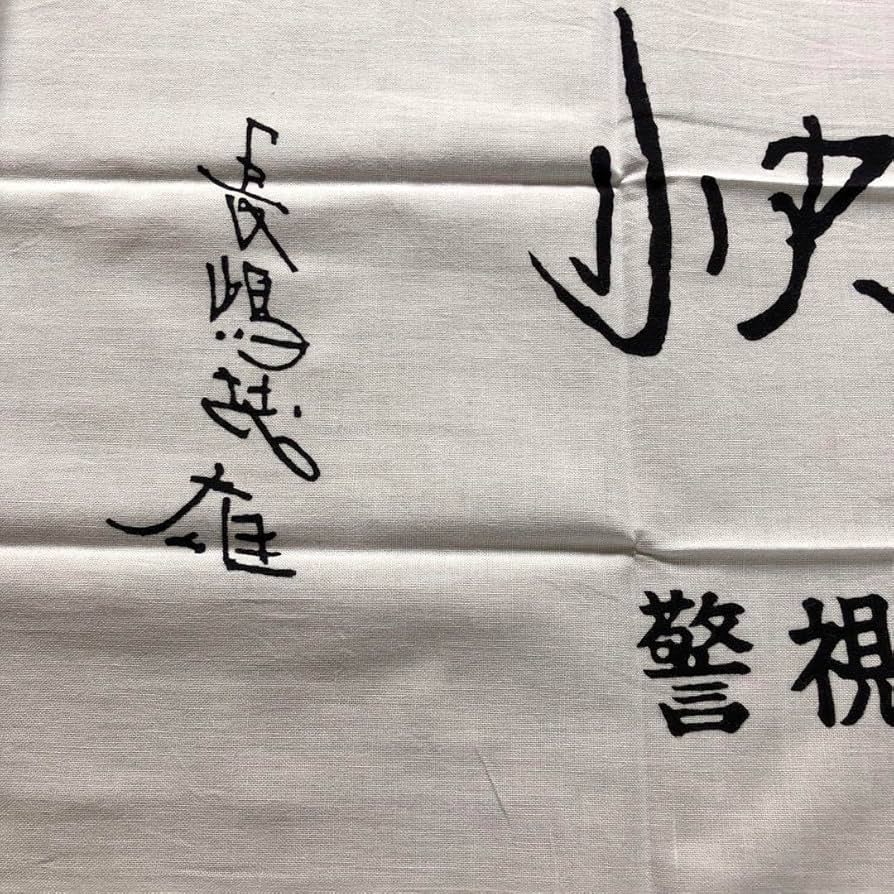 快
長嶋茂雄
警視